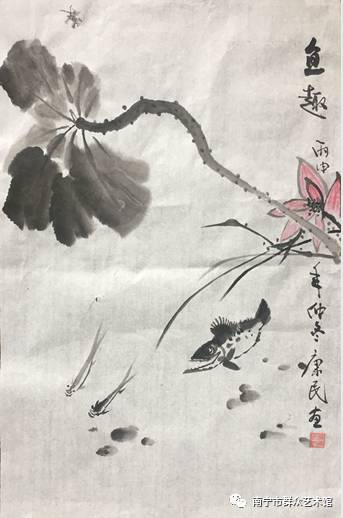 鱼趣
丙申
年仲冬康民画
南宁市群众艺术馆